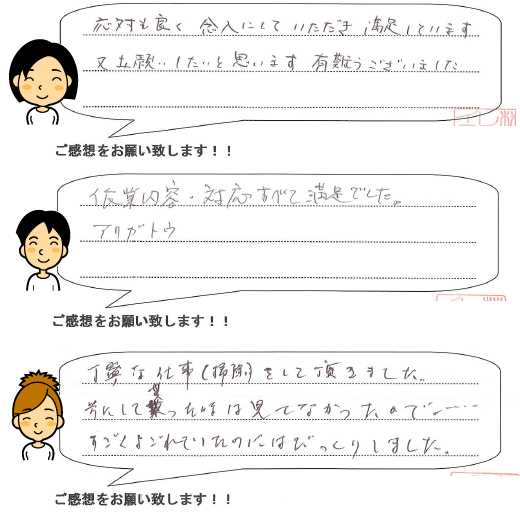 応対も良く 念入にして いただき 満足しています
又お願いしたいと思います 有難うございました
ご感想をお願い致します！！
作業内容・対応すべて満足でした。
アリガトウ
ご感想をお願い致します！！
丁寧な仕事(掃除)をして頂きました。
して 見てなかったので
すごくよごれていたのにはびっくりしました。
ご感想をお願い致します！！